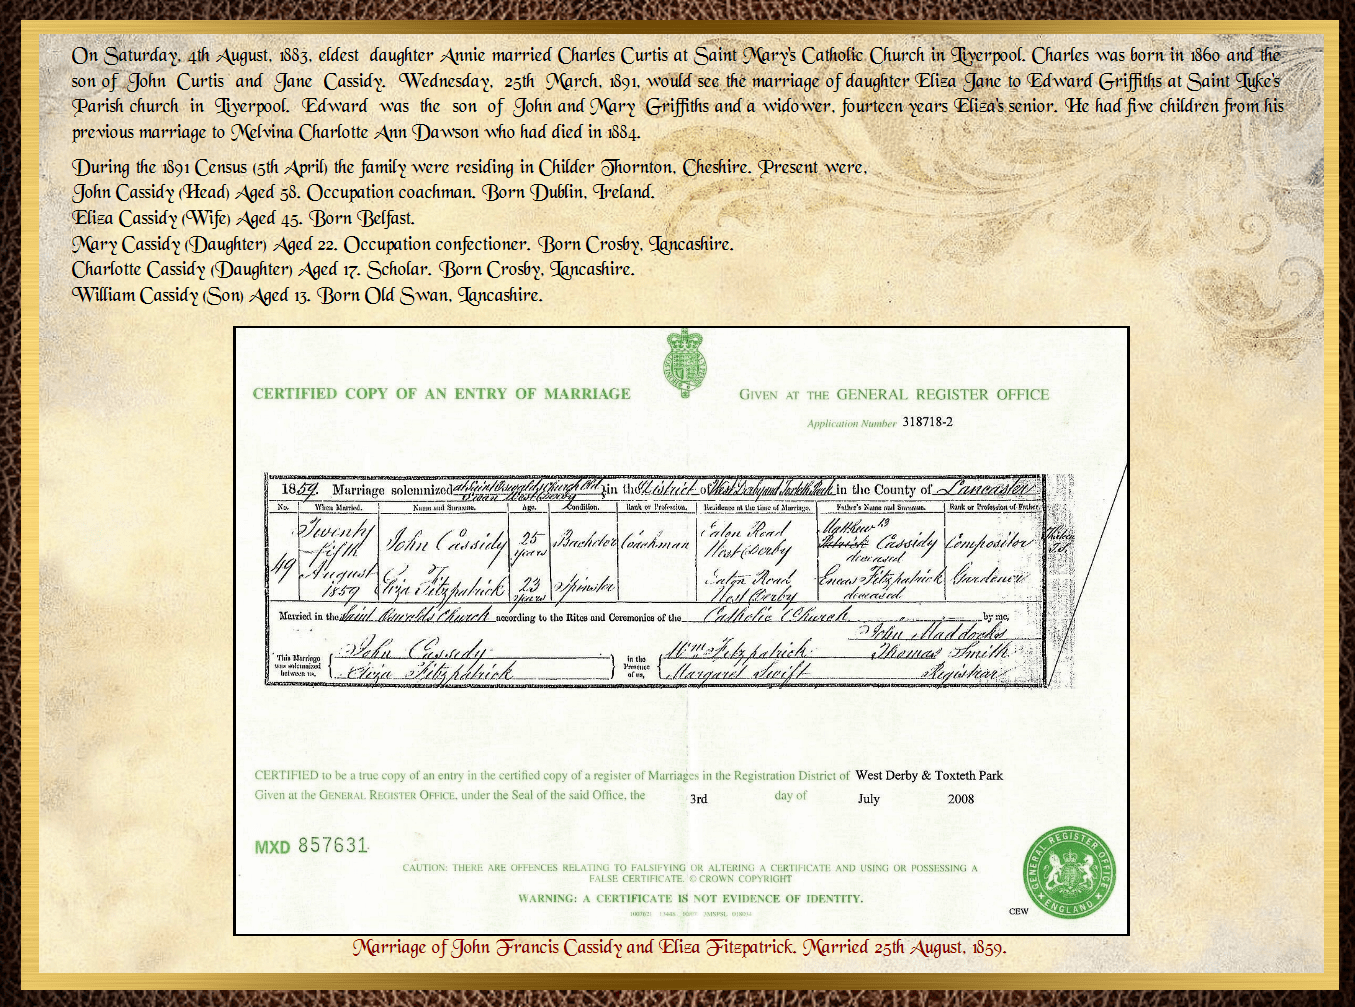 On Saturday, 4th August, 1883, eldest daughter Annie married Charles Curtis at Saint Mary's Catholic Church in Liverpool. Charles was born in 1860 and the
son of John Curtis and Jane Cassidy. Wednesday, 25th March, 1891, would see the marriage of daughter Eliza Jane to Edward Griffiths at Saint Luke's
Parish church in Liverpool. Edward was the son of John and Mary Griffiths and a widower, fourteen years Eliza's senior. He had five children from his
previous marriage to Melvina Charlotte Ann Dawson who had died in 1884.
During the 1891 Census (5th April) the family were residing in Childer Thornton, Cheshire. Present were,
John Cassidy (Head) Aged 58. Occupation coachman. Born Dublin, Ireland.
Eliza Cassidy (Wife) Aged 45. Born Belfast.
Mary Cassidy (Daughter) Aged 22. Occupation confectioner. Born Crosby, Lancashire.
Charlotte Cassidy (Daughter) Aged 17. Scholar. Born Crosby, Lancashire.
William Cassidy (Son) Aged 13. Born Old Swan, Lancashire.
CERTIFIED COPY OF AN ENTRY OF MARRIAGE
GIVEN AT THE GENERAL REGISTER OFFICE
Application Number 318718-2
1859. Marriage solemnized at Saint Oswalds Church Old Swan West Derby in the District of West Derby and Toxteth Park in the County of Lancaster
No. When Married. Name and Surname. Age. Condition. Rank or Profession. Residence at the time of Marriage. Father's Name and Surname. Rank or Profession of Father.
49 Twenty fifth August 1859 John Cassidy 25 years Bachelor Coachman Eaton Road West Derby Matthew 13 Patrick Cassidy deceased Compositor
Eliza Fitzpatrick 23 years Spinster Eaton Road West Derby Eneas Fitzpatrick deceased Gardener
Married in the Saint Oswalds Church according to the Rites and Ceremonies of the Catholic Church by me,
John Maddocks
This Marriage was solemnized between us, John Cassedy in the Presence of us, Wm Fitzpatrick Thomas Smith
Eliza Fitzpatrick Margaret Swift Registrar
CERTIFIED to be a true copy of an entry in the certified copy of a register of Marriages in the Registration District of West Derby & Toxteth Park
Given at the GENERAL REGISTER OFFICE, under the Seal of the said Office, the 3rd day of July 2008
MXD 857631
CAUTION: THERE ARE OFFENCES RELATING TO FALSIFYING OR ALTERING A CERTIFICATE AND USING OR POSSESSING A
FALSE CERTIFICATE. © CROWN COPYRIGHT
WARNING: A CERTIFICATE IS NOT EVIDENCE OF IDENTITY.
GENERAL REGISTER OFFICE ENGLAND
CEW
Marriage of John Francis Cassidy and Eliza Fitzpatrick. Married 25th August, 1859.